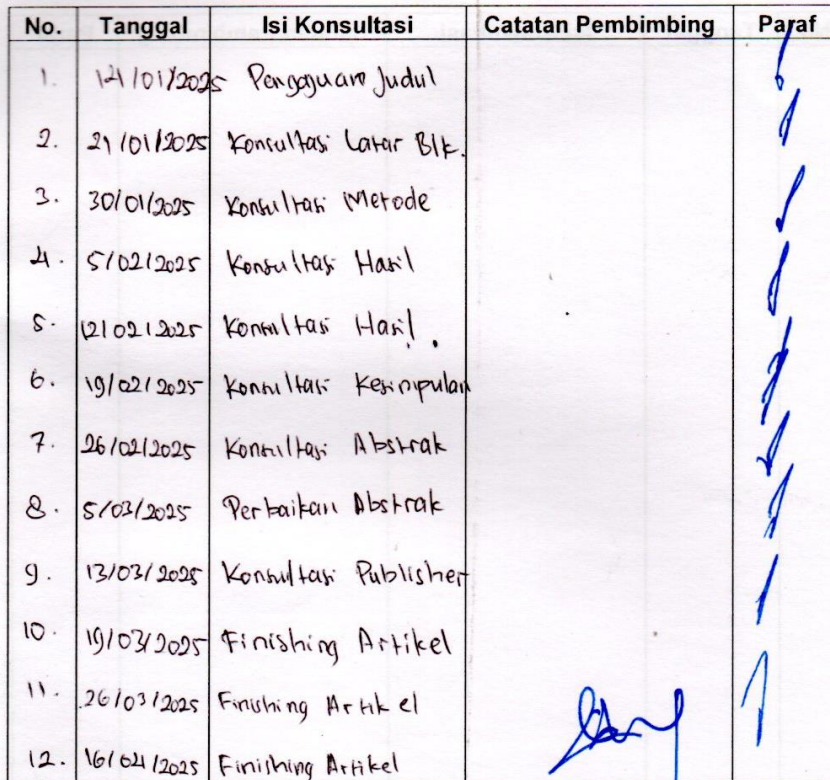 No. Tanggal Isi Konsultasi Catatan Pembimbing Paraf
1. 14/01/2025 Pengajuan Judul
2. 21/01/2025 Konsultasi Latar Blk.
3. 30/01/2025 Konsultasi Metode
4. 5/02/2025 Konsultasi Hasil
5. 12/02/2025 Konsultasi Hasil
6. 19/02/2025 Konsultasi Kesimpulan
7. 26/02/2025 Konsultasi Abstrak
8. 5/03/2025 Perbaikan Abstrak
9. 13/03/2025 Konsultasi Publisher
10. 19/03/2025 Finishing Artikel
11. 26/03/2025 Finishing Artikel
12. 16/04/2025 Finishing Artikel